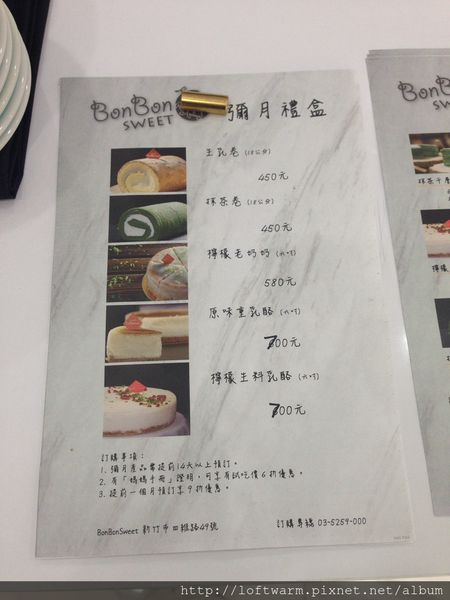 BonBon
SWEET
彌月禮盒
生乳卷 (18公分)
450元
抹茶卷 (18公分)
450元
檸檬老奶奶 (六吋)
580元
原味重乳酪 (六吋)
700元
檸檬生料乳酪 (六吋)
700元
訂購事項：
1. 彌月產品需提前14天以上預訂。
2. 有「媽媽手冊」證明，可享有試吃價6折優惠。
3. 提前一個月預訂享9折優惠。
BonBonSweet 新竹市四維路49號
訂購專線 03-5259-000
BonBon
SWEET
抹茶千層
檸檬
http://loftwarm.pixnet.net/album